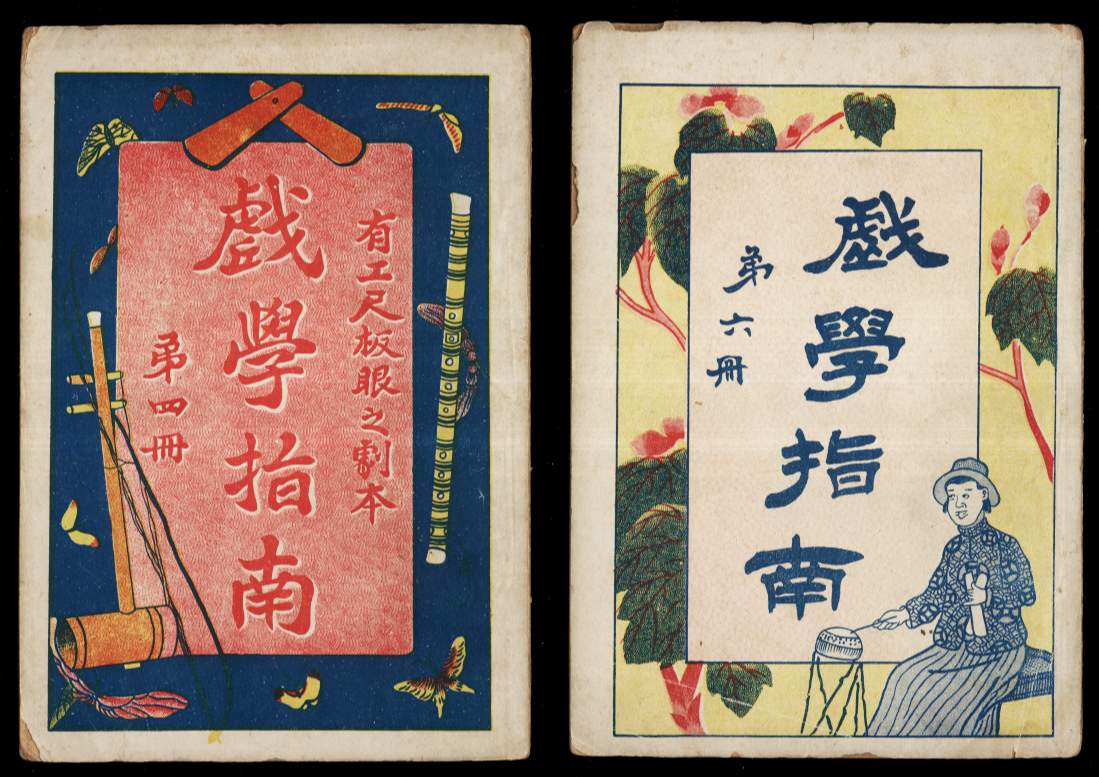 有工尺板眼之劇本
戲學指南
弟四冊
戲學指南
弟六冊